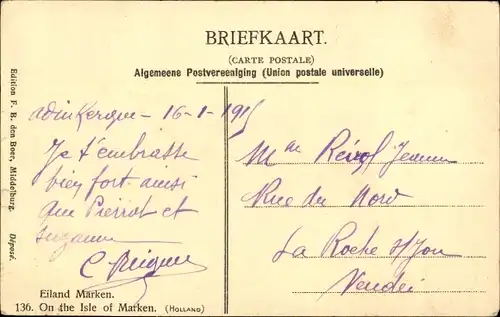 BRIEFKAART.
(CARTE POSTALE)
Algemeene Postvereeniging (Union postale universelle)
Edition F. B. den Boer, Middelburg. Déposé.
Adinkerque - 16-1-1915
Je t'embrasse
bien fort ainsi
que Pierrot et
Suzanne
Mme Jeanne
Rue du Nord
La Roche s/Yon
Vendée
Eiland Marken.
136. On the Isle of Marken. (HOLLAND)